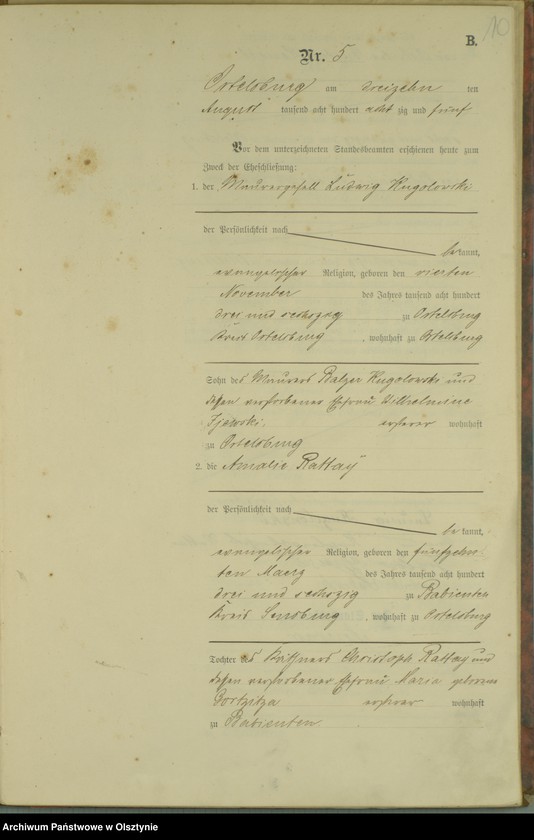 10
B.
Nr. 5
Ortelsburg am dreizehn ten
August tausend acht hundert acht zig und fünf
Vor dem unterzeichneten Standesbeamten erschienen heute zum
Zweck der Eheschließung:
1. der Maurergesell Ludwig Kugolowski
der Persönlichkeit nach
be kannt,
evangelischer Religion, geboren den vierten
November des Jahres tausend acht hundert
drei und sechszig zu Ortelsburg
Kreis Ortelsburg , wohnhaft zu Ortelsburg
Sohn des Maurers Balzer Kugolowski und
dessen verstorbener Ehefrau Wilhelmine
ersterer wohnhaft
zu Ortelsburg
2. die Amalie Rattay
der Persönlichkeit nach
be kannt,
evangelischer Religion, geboren den fünfzehn
ten Maerz des Jahres tausend acht hundert
drei und sechszig zu Babienten
Kreis Sensburg , wohnhaft zu Ortelsburg
Tochter des Käthners Christoph Rattay und
dessen verstorbener Ehefrau Maria geborene
ersterer wohnhaft
zu Babienten
Archiwum Państwowe w Olsztynie